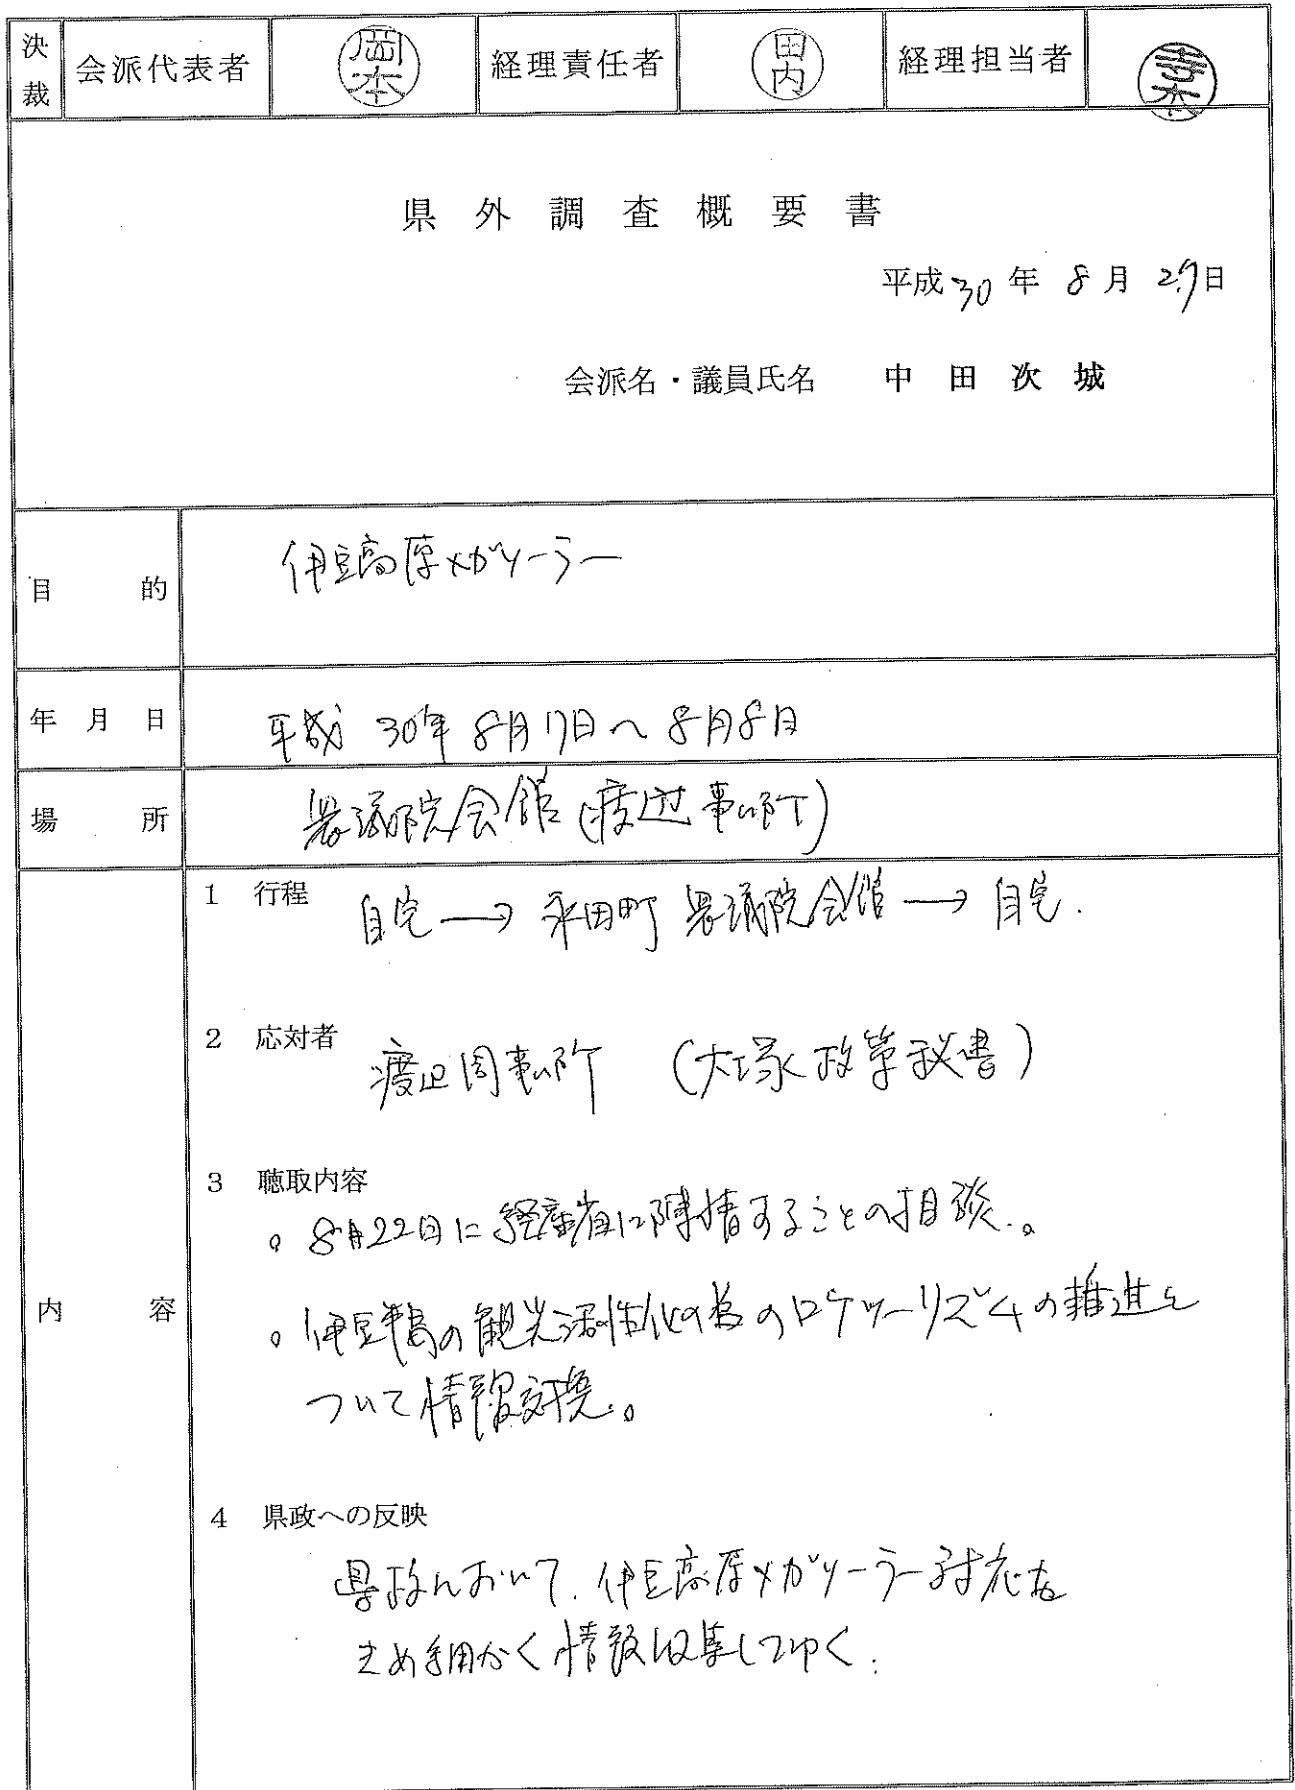 決裁 会派代表者 岡本 経理責任者 田内 経理担当者
県外調査概要書
平成30年8月27日
会派名・議員氏名 中田次城
目的 伊豆高原メガソーラー
年月日 平成30年8月7日〜8月8日
場所 衆議院会館(渡辺事務所)
内容
1 行程 自宅→永田町衆議院会館→自宅.
2 応対者 渡辺周事務所 (大塚政策秘書)
3 聴取内容
。8月22日に経産省に陳情することの相談。
。伊豆半島の観光活性化の為のロケツーリズムの推進に
ついて情報交換。
4 県政への反映
県政において、伊豆高原メガソーラー対応を
きめ細かく情報収集してゆく.